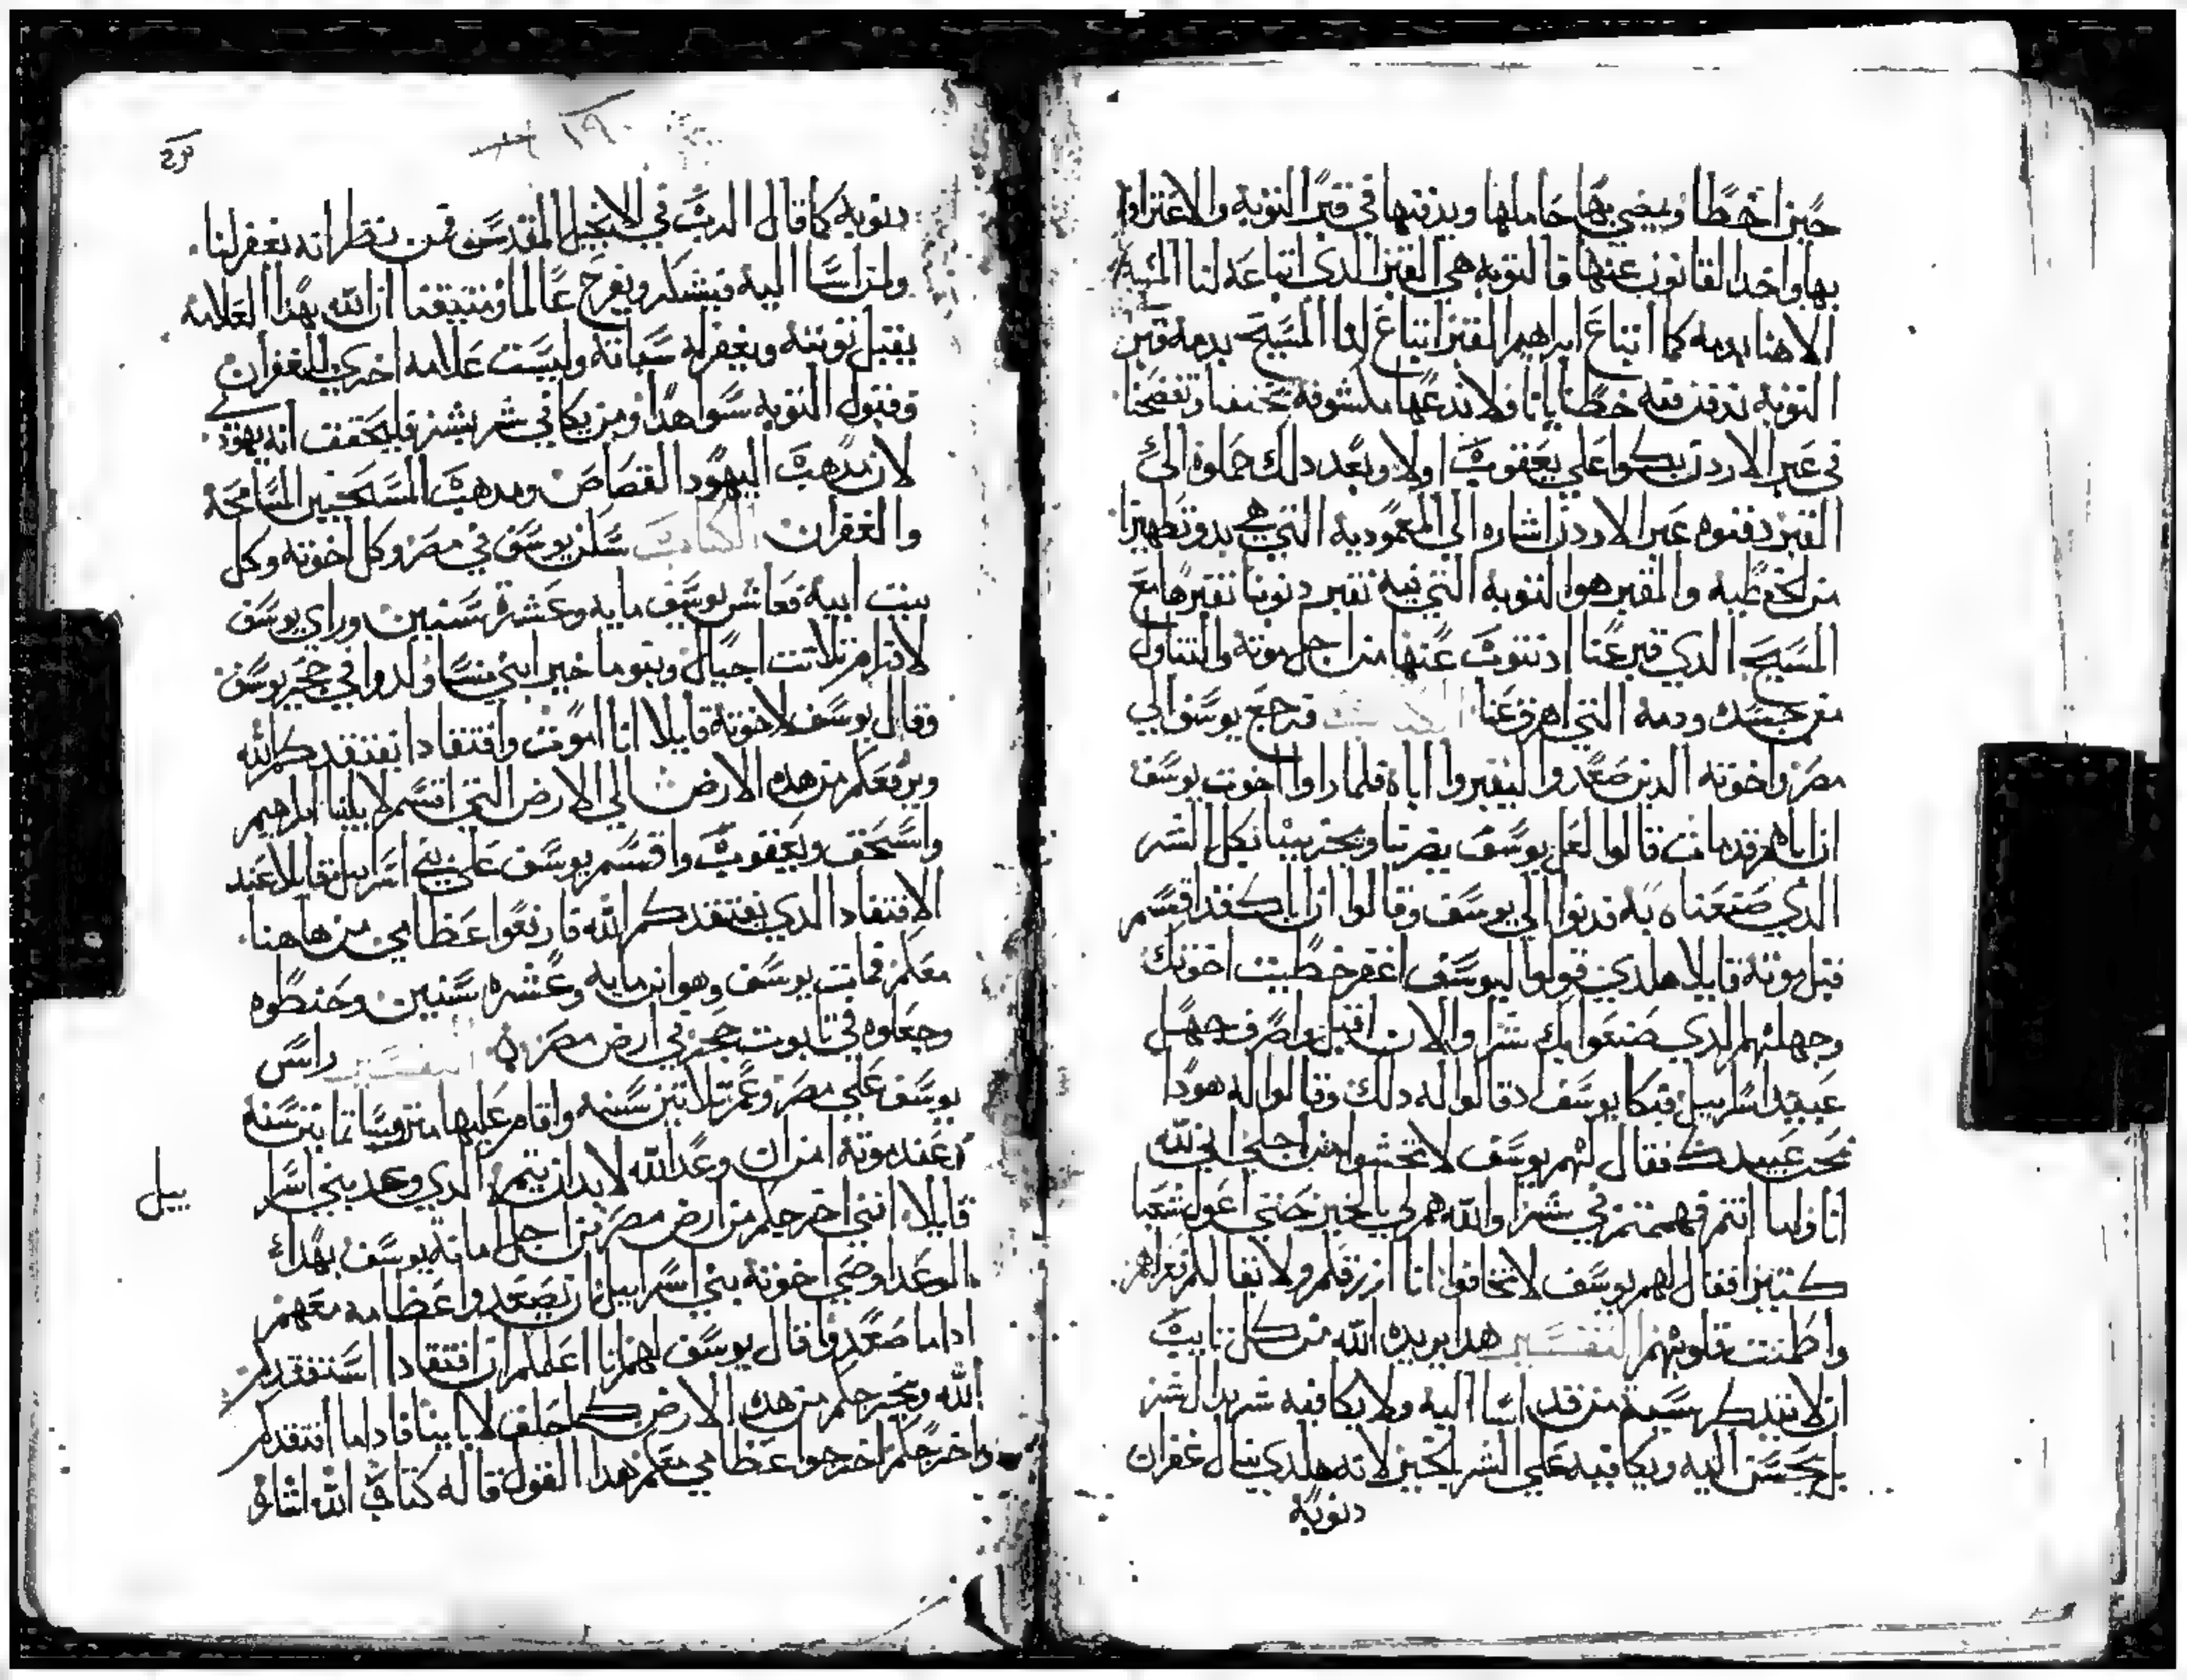 حين اخطا ويمضي بها حاملها ويدفنها في قبر التوبة والاعتراف
بها واخد القانون عنها فالتوبه هي القبر الدي ابتاعه لنا المسيح
الاهنا بدمه كما ابتاع ابرهيم القبر ابتاع لنا المسيح بدمه قبر
التوبه ندفن فيه خطايانا ولا ندعها مكشوفه تخنفنا وتفضحنا
في عبر الاردن بكوا علي يعقوب اولا وبعد دلك حملوه الي
القبر دفنوه عبر الاردن اشاره الي المعموديه التي هي بدو تطهيرنا
من الخطيه والقبر هو التوبه التي فيه نقبر دنوبنا نقبرها مع
المسيح الدي قبر عنا اد نتوب عنها من اجل موته والتناول
من جسده ودمه التي اهرق عنا الكتاب فرجع يوسف الي
مصر واخوته الدين صعدوا ليقبروا اباه فلما راوا اخوت يوسف
ان اباهم قد مات قالوا لعل يوسف يضرنا ويجزينا بكل الشر
الدي صنعناه به فدنوا الي يوسف وقالوا ان اباك قد اقسم
قبل موته قايلا هكدي قولوا ليوسف اغفر خطيت اخوتك
وجهلهم الدي صنعوا بك شرا والان اقبل واصرف جهل
عبيد اسراييل فبكا يوسف اد قالوا له دلك وقالوا له هودا
نحن عبيدك فقال لهم يوسف لا تخشوا من اجلي اني لله
انا واما انتم فهممتم في شرا والله هم لي بالخير حتي اعول شعبا
كتيرا فقال لهم يوسف لا تخافوا انا ارزقكم ولا نفالكم نعزاهم
واطمنت قلوبهم التفسير هدا يريده الله من كل تايب
ان لا يتدكر سية من قد اسا اليه ولا يكافيه شر بدل الشر
بل يحسن اليه ويكافيه علي الشر بالخير لانه هكدي ينال غفران
دنوبه
دنوبه كما قال الرب في الانجيل المقدس فمن نظر انه يغفر لنا
ولمن اسا اليه فيشكر ويفرح عالما ومتيقنا ان الله بهدا العلامه
يقبل توبته ويغفر له سياته وليست علامه اخري للغفران
وقبول التوبه سوا هدا ومن يكافي شر بشر فليحقق انه يهودي
لان مدهب اليهود القصاص ومدهب المسيحيين المسامحة
والغفران الكتاب سكن يوسف في مصر وكل اخوته وكل
بيت ابيه فعاش يوسف مايه وعشرة سنين وراي يوسف
لافرام تلاتت اجيال وبنو ماخير ابن منسا ولدوا في حجر يوسف
وقال يوسف لاخوته قايلا انا اموت وافتقادا يفتقدكم الله
ويرفعكم من هده الارض الي الارض التي اقسم لابينا ابراهيم
واسحق ويعقوب واقسم يوسف علي بني اسراييل قايلا عند
الافتقاد الدي يفتقدكم الله فارفعوا عظامي من هاهنا
معكم فمات يوسف وهو ابن مايه وعشره سنين وحنطوه
وجعلوه في تابوت حجر في ارض مصر التفسير راس
يوسف علي مصر وعمره تلاتين سنه واقام عليها متروسا تمانين سنه
عند موته امن ان وعد الله لا بد ان يتم الدي وعد بني اسرا
ييل
قايلا انني اخرجكم من ارض مصر من اجل امانة يوسف بهدا
الوعد اوصي اخوته بني اسراييل ان يصعدوا عظامه معهم
اداما صعدوا قال يوسف لهم انا اعلمكم ان افتقادا يستفقدكم
الله ويخرجكم من هده الارض كما حلف لاباينا فاداما افتقدكم
واخرجكم اخرجوا عظامي معكم هدا القول قاله كتاب الله